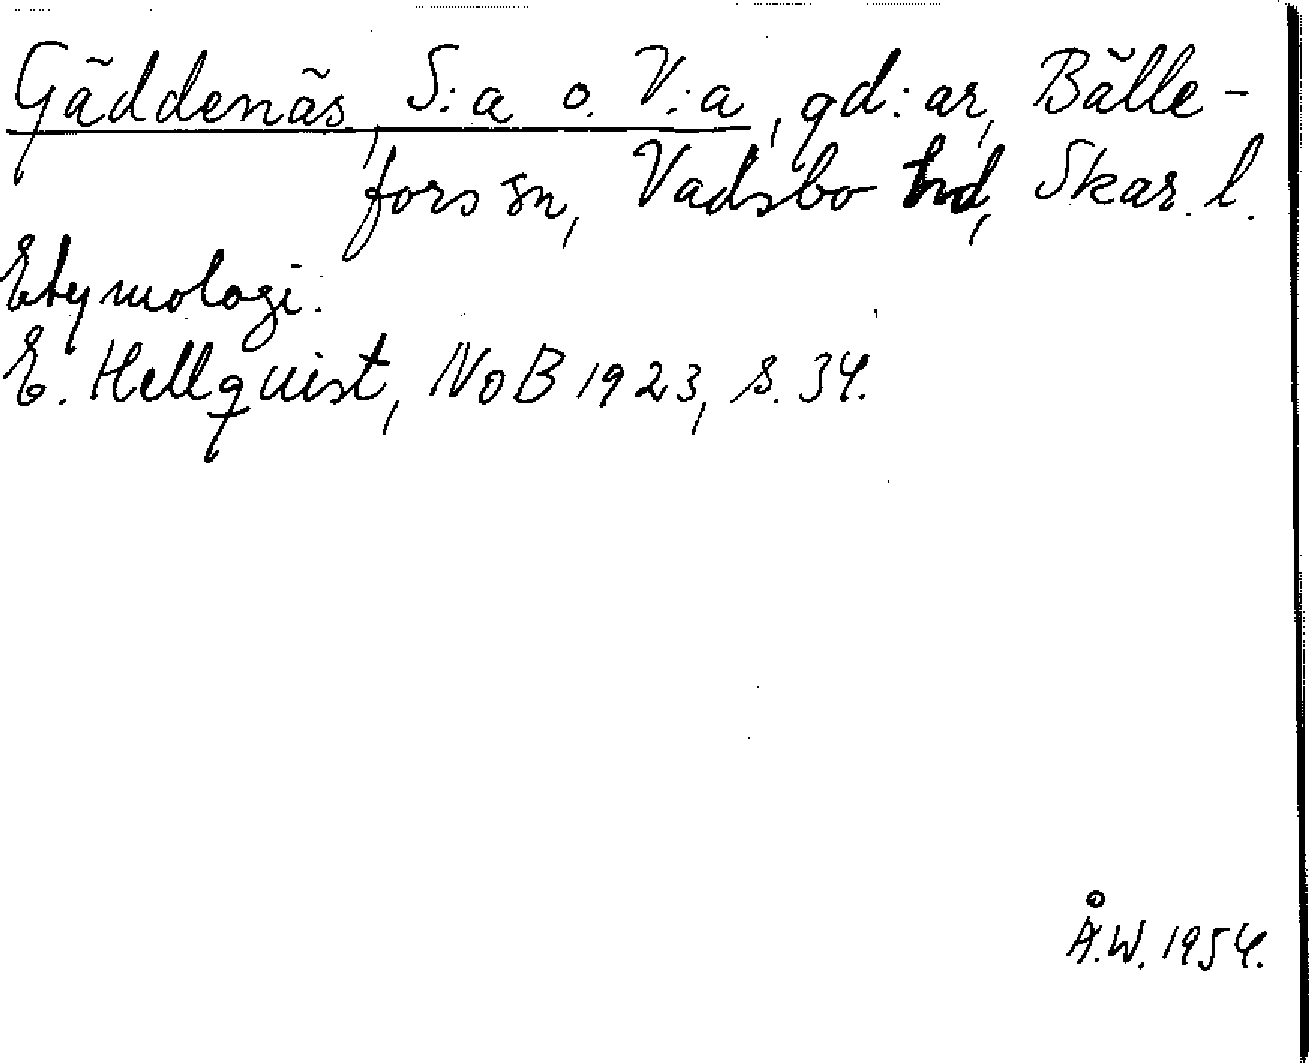 Gäddenäs, S:a o. V:a, gd:ar, Bälle-
fors sn, Vadsbo hd, Skar. l.
Etymologi.
E. Hellquist, NoB 1923, s. 34.
Å.W. 1954.